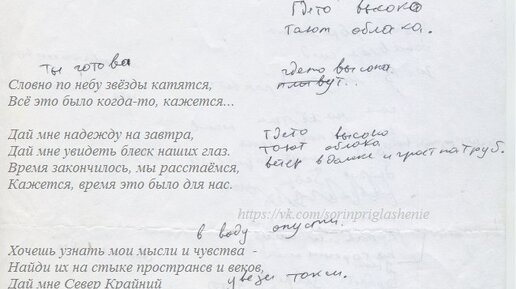 Гдето высоко
тают облака.
ты готова
гдето высоко
плывут..
Словно по небу звёзды катятся,
Всё это было когда-то, кажется...
Дай мне надежду на завтра,
Дай мне увидеть блеск наших глаз.
Время закончилось, мы расстаёмся,
Кажется, время это было для нас.
Гдето высоко
тают облака
и труб.
https://vk.com/sorinpriglashenie
в воду опусти.
Хочешь узнать мои мысли и чувства -
Найди их на стыке пространств и веков,
Дай мне Север Крайний
увези